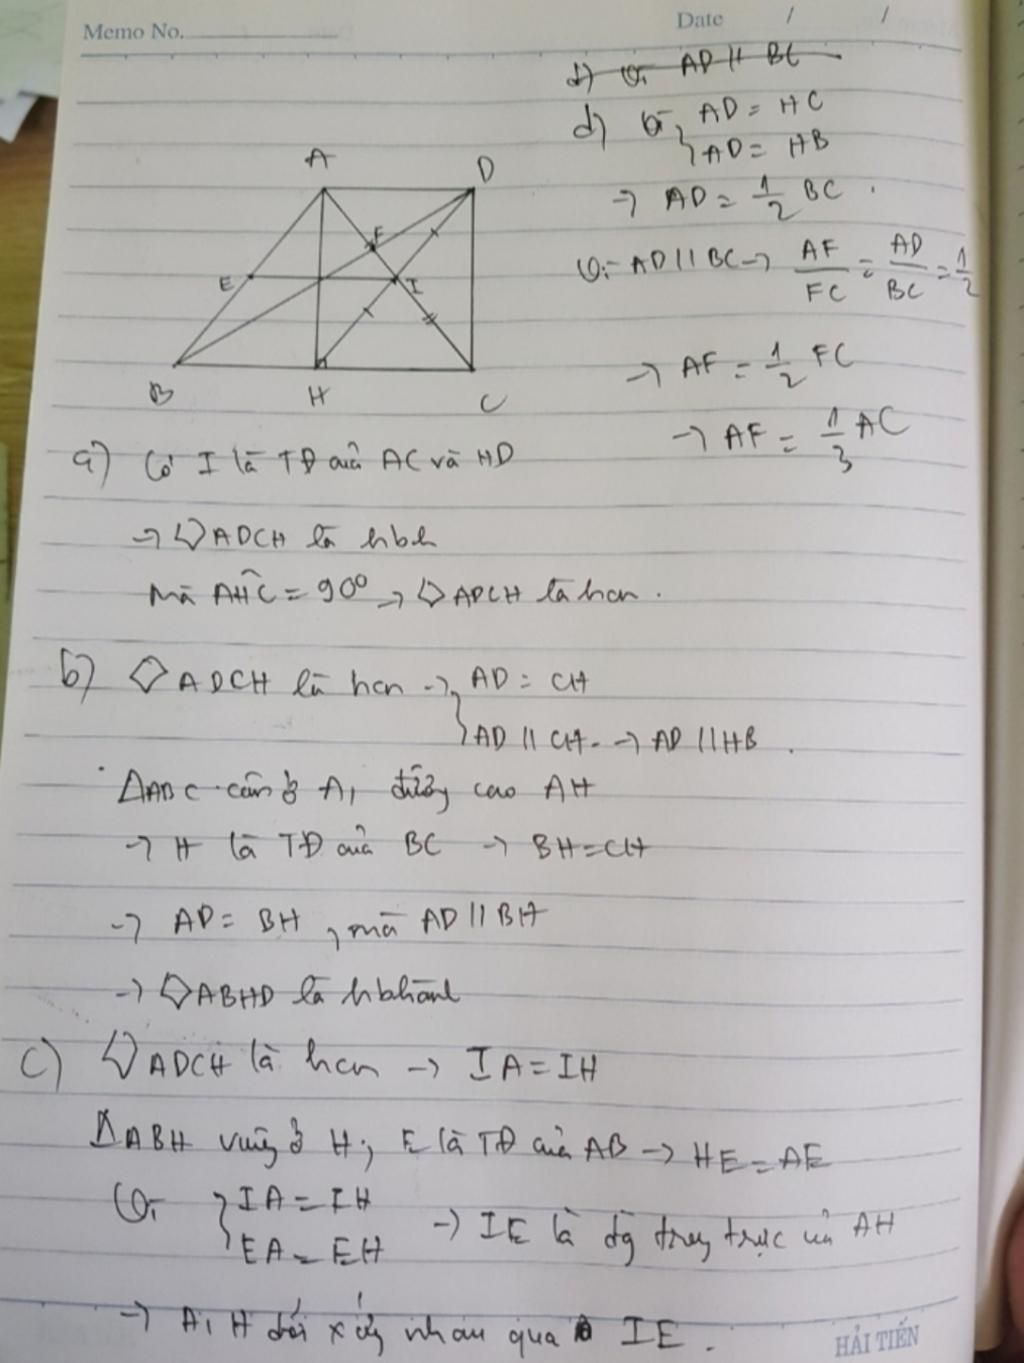 Memo No.
Date / /
d) Vì AD // BC
d) Vì { AD = HC
AD = HB
→ AD = 1/2 BC.
Vì AD // BC → AF/FC = AD/BC = 1/2
→ AF = 1/2 FC
→ AF = 1/3 AC
A
D
F
E
I
B
H
C
a) Có I là TĐ của AC và HD
→ ▱ADCH là hbh
Mà AHC = 90° → ▱ADCH là hcn.
b) ◇ADCH là hcn → { AD = CH
AD // CH → AD // HB.
ΔABC cân ở A, đường cao AH
→ H là TĐ của BC → BH = CH
→ AD = BH, mà AD // BH
→ ◇ABHD là hbhành
c) ◇ADCH là hcn → IA = IH
ΔABH vuông ở H; E là TĐ của AB → HE = AE
Vì { IA = IH
EA = EH → IE là đg trung trực của AH
→ A, H đối xứng nhau qua IE.
HẢI TIẾN